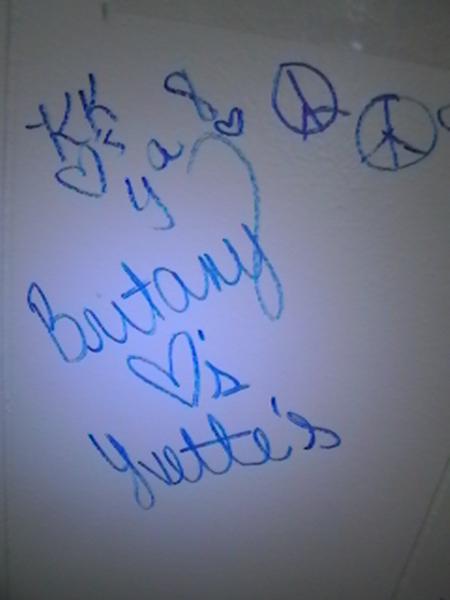 KK's
ya
Britany
♡'s
Yvette's